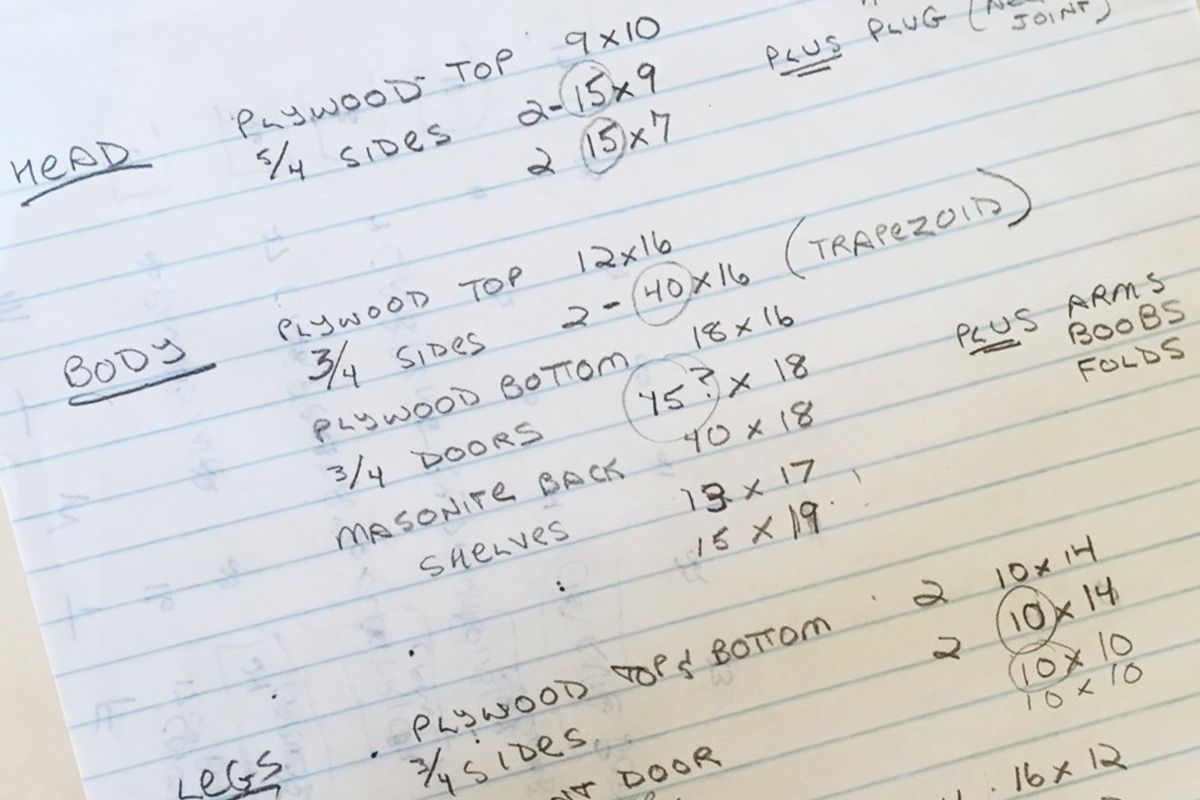 HEAD PLYWOOD TOP 9x10 PLUS PLUG
5/4 SIDES 2-15x9 JOINT)
2 15x7
BODY PLYWOOD TOP 12x16
3/4 SIDES 2-40x16 (TRAPEZOID)
PLYWOOD BOTTOM 18x16 PLUS ARMS
3/4 DOORS 45? x 18 BOOBS
MASONITE BACK 40 x 18 FOLDS
SHELVES 13 x 17
15 x 19
LEGS PLYWOOD TOP & BOTTOM 2 10x14
3/4 SIDES 2 10x14
10x10
DOOR 10x10
16x12